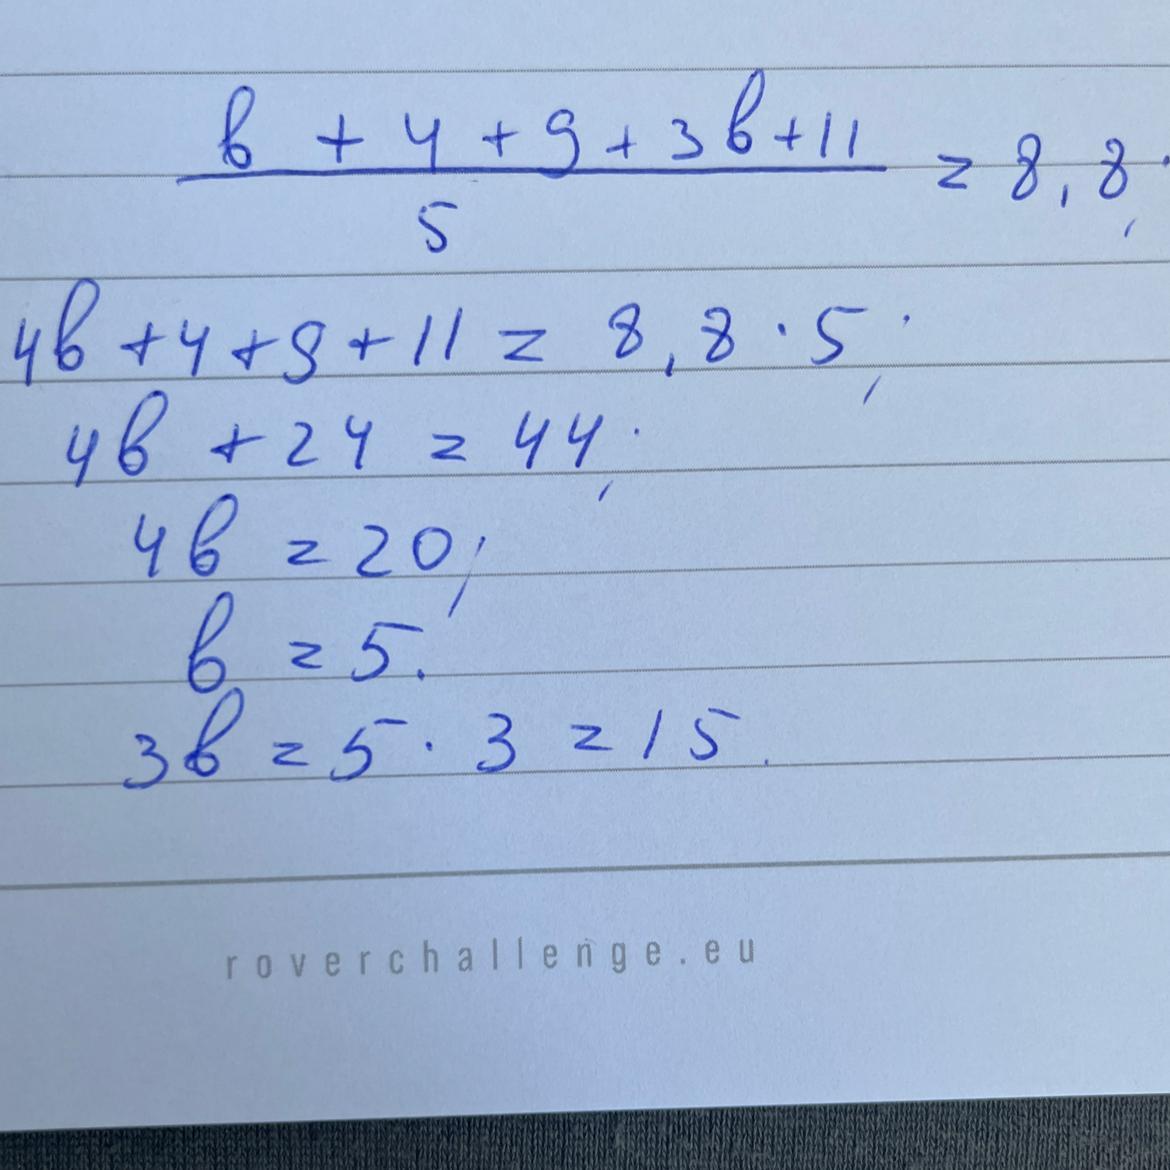 b + 4 + 9 + 3b + 11
5
= 8,8;
4b + 4 + 9 + 11 = 8,8 · 5;
4b + 24 = 44;
4b = 20;
b = 5.
3b = 5 · 3 = 15.
roverchallenge.eu